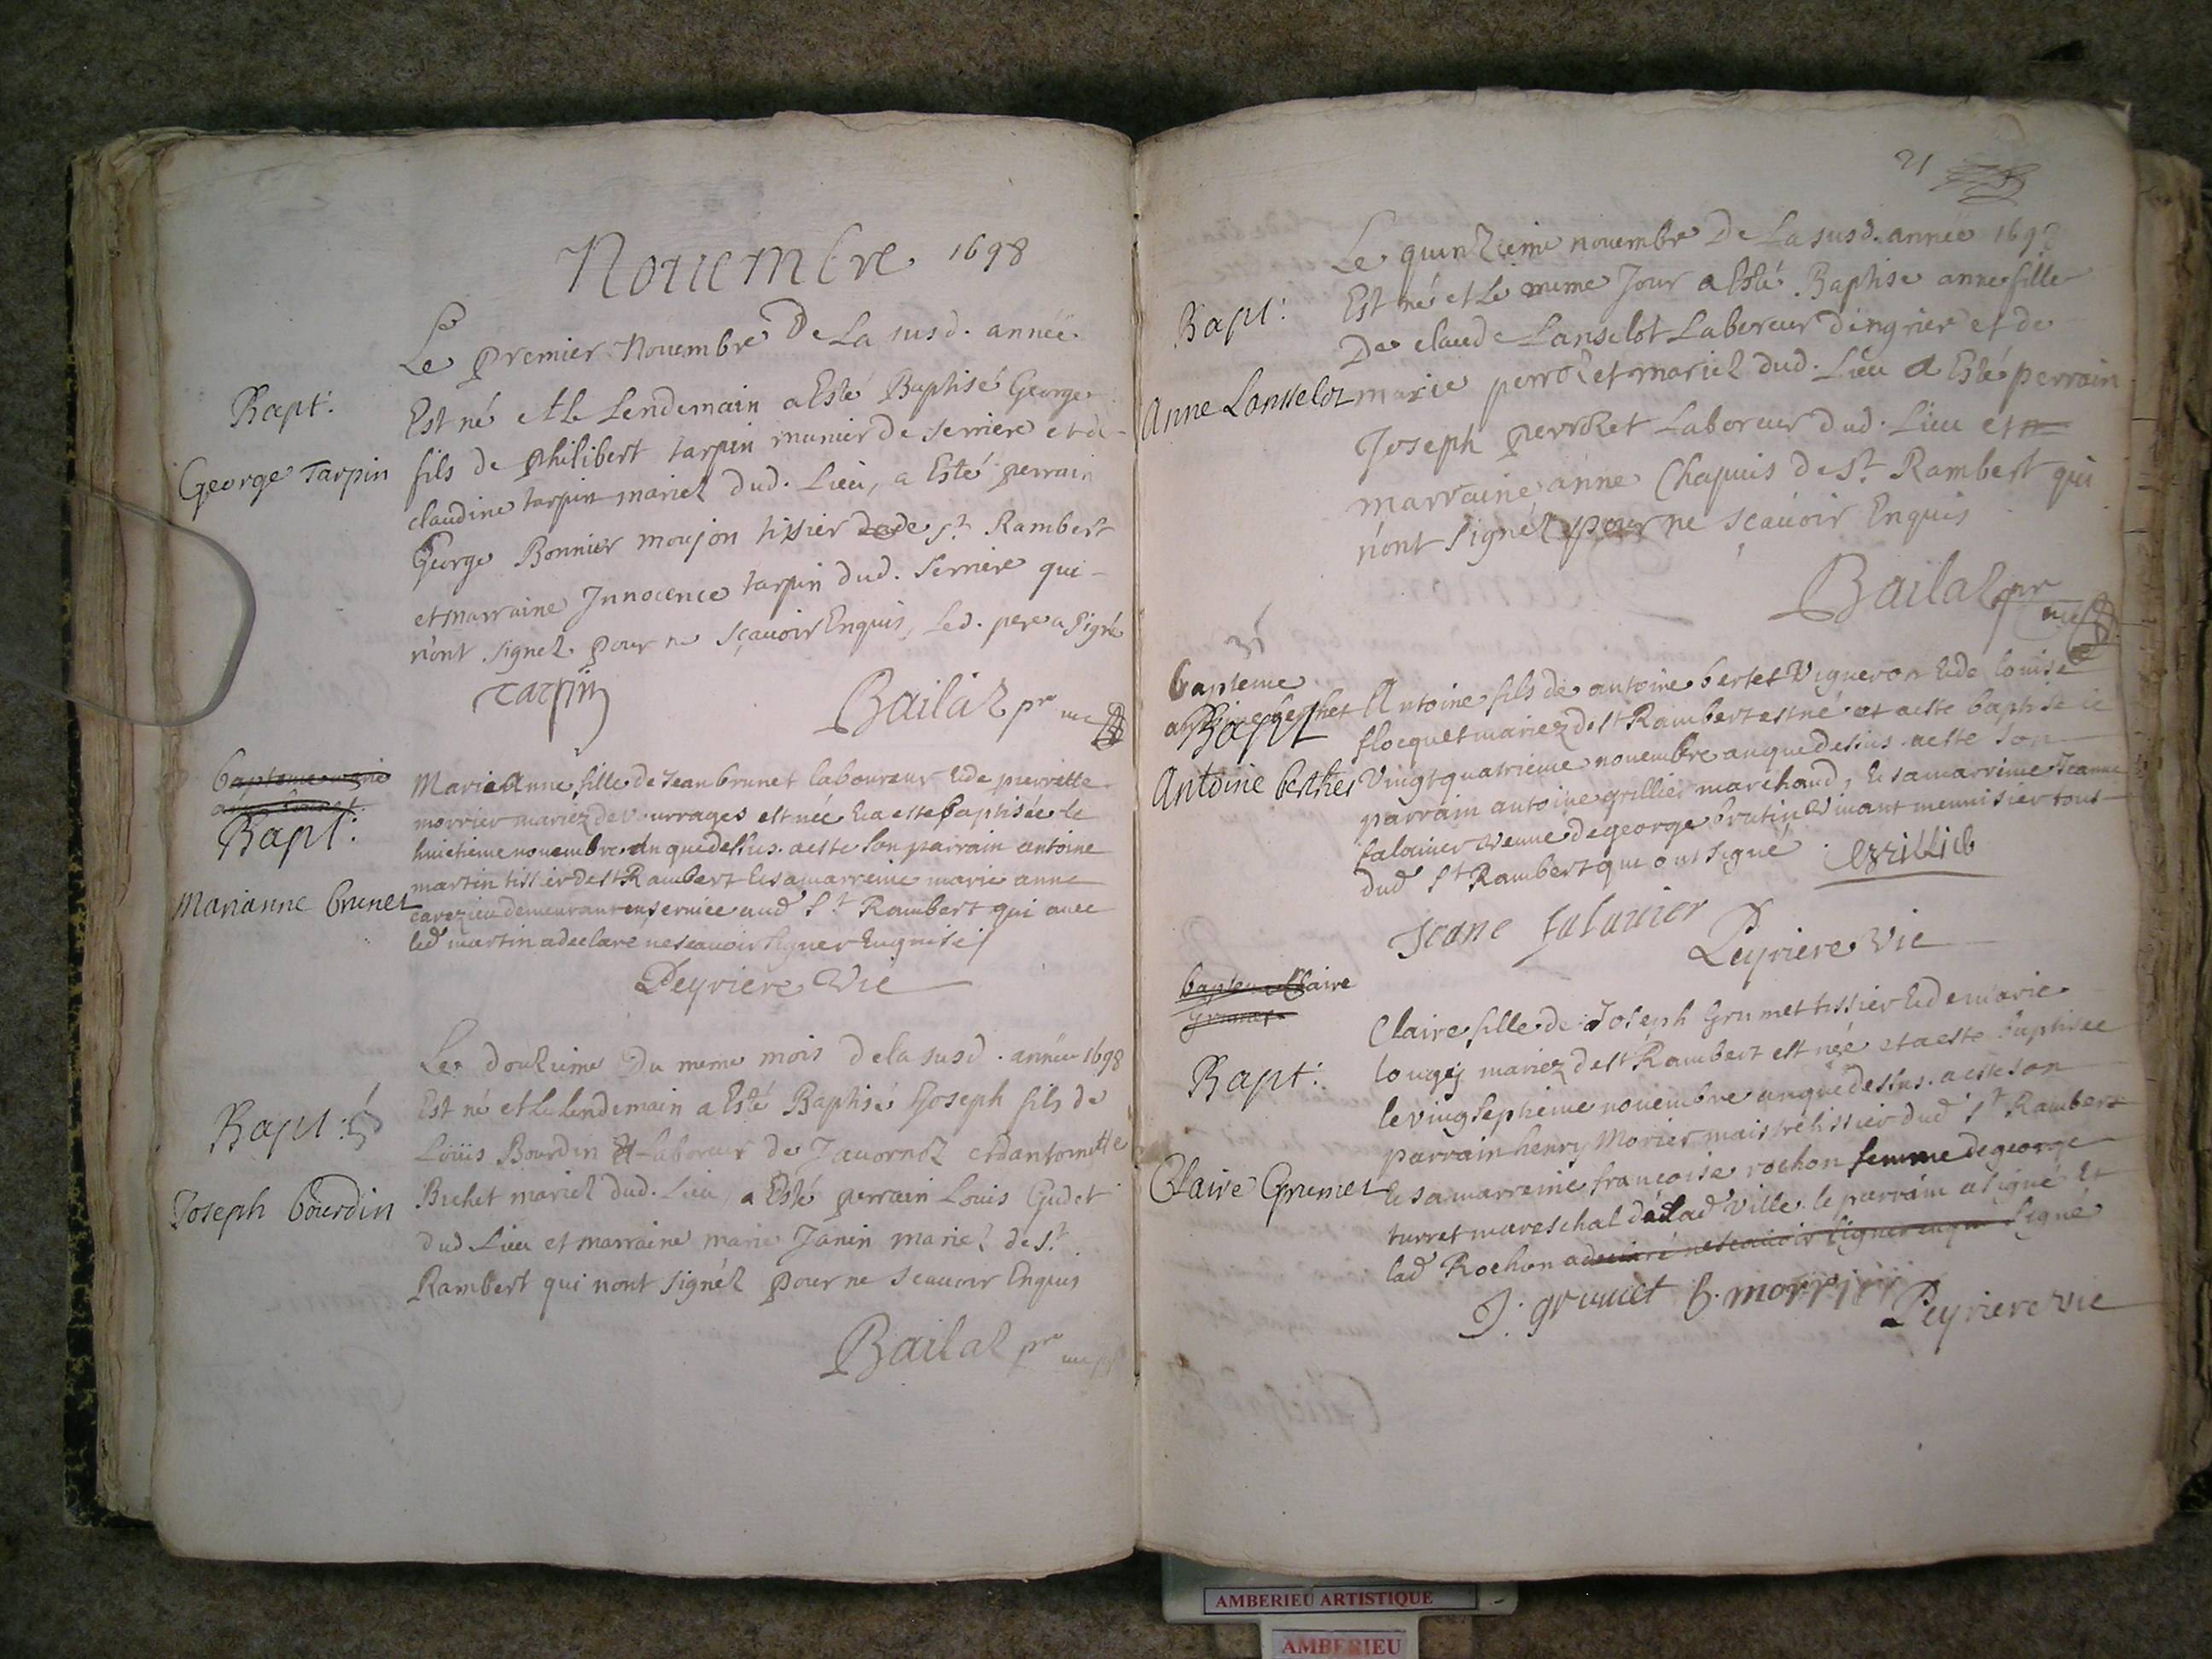 Novembre 1698
Le premier Novembre De La susd. année
Bapt.
Est né et le Lendemain a Esté Baptisé George
George Tarpin
fils de philibert tarpin munier de serriere et de
claudine tarpin mariez dud. Lieu, a Esté perrain
George Bonnier moujon tissier de st Rambert
et marraine Innocence tarpin dud. serriere qui
n'ont signez pour ne sçavoir Enquis, led. pere a signé
Tarpin
Bailaz pr
bapteme marie
anne brunet
Bapt.
Marianne brunet
Marie Anne fille de Jean brunet laboureur & de pierrette
morrier mariez de vourrages est née & a esté baptisée le
huictieme novembre an que dessus. a esté son parrain antoine
martin tissier de st Rambert & sa marreine marie anne
demeurant en service aud St Rambert qui avec
led martin a declare ne scavoir signer Enquise
Peyriere Vic
Le douzieme Du meme mois de la susd. année 1698
Bapt.
Est né et le lendemain a Esté Baptisé Joseph fils de
Joseph bourdin
Loüis Bourdin Laboreur de Javornoz et dantoinette
Buchet mariez dud. Lieu, a Esté perrain Louis Gudet
dud Lieu et marraine marie Janin mariez de St.
Rambert qui nont signéz pour ne scavoir Enquis
Bailaz pr
21
Le quinzieme novembre De La susd. année 1698
Bapt.
Est né et Le meme Jour a Esté Baptise anne fille
De claude Lanselot Laboreur dingrier et de
Anne Lansseloz
marie perrozet mariez dud. Lieu a Esté perrain
Joseph perrozet Laboreur dud. Lieu et
marraine anne Chapuis de St. Rambert qui
n'ont signéz pour ne sçavoir Enquis
Bailaz pr
bapteme
Bapt
Antoine berthet
Antoine fils de antoine bertet Vigneron & de louise
flocquet mariez de st Rambert est né et a esté baptisé le
Vingt quatrieme novembre an que dessus. a esté son
parrain antoine grillier marchand, & sa marrine Jeanne
falavier veuve de george brutin vivant mennisier tous
dud St Rambert qui ont signé
Grillier
Jeane falavier
Peyriere Vic
bapteme Claire
grumet
Bapt.
Claire Grumet
Claire fille de Joseph Grumet tissier & de marie
mariez de st Rambert est née et a esté baptisee
le vingt septieme novembre an que dessus. a esté son
parrain henry Morier maistre tissier dud St Rambert
& sa marreine francoise rochon femme de george
turret mareschal de lad Ville. le parrain a signé Et
lad Rochon a declaré ne scavoir signer enquise signé
J. grumet
h. morrier
Peyriere vic
AMBERIEU ARTISTIQUE
AMBERIEU